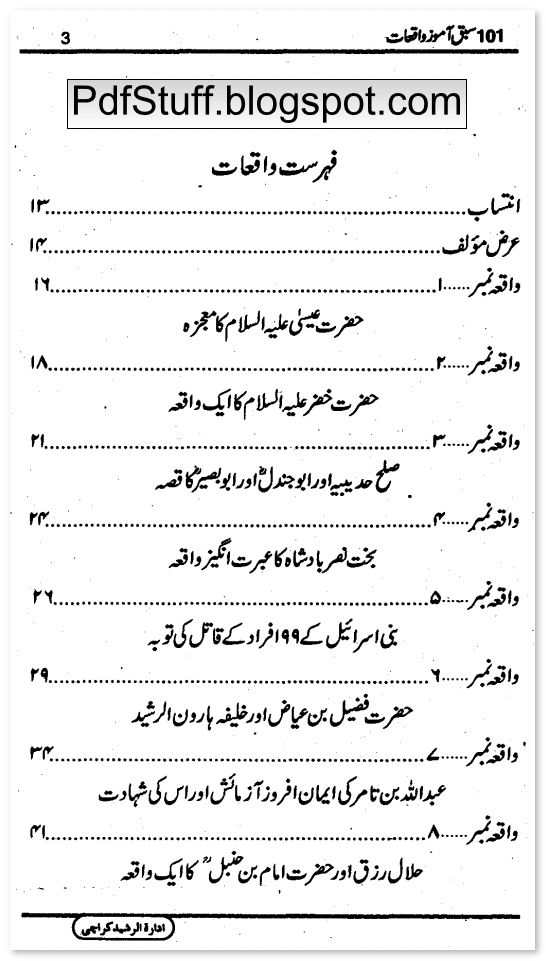 101 سبق آموز واقعات 3
PdfStuff.blogspot.com
فہرست واقعات
انتساب................................۱۳
عرض مؤلف................................۱۴
واقعہ نمبر......۱................................۱۶
حضرت عیسیٰ علیہ السلام کا معجزہ
واقعہ نمبر......۲................................۱۸
حضرت خضر علیہ السلام کا ایک واقعہ
واقعہ نمبر......۳................................۲۱
صلح حدیبیہ اور ابو جندلؓ اور ابو بصیرؓ کا قصہ
واقعہ نمبر......۴................................۲۴
بخت نصر بادشاہ کا عبرت انگیز واقعہ
واقعہ نمبر......۵................................۲۶
بنی اسرائیل کے ۹۹ افراد کے قاتل کی توبہ
واقعہ نمبر......۶................................۲۹
حضرت فضیل بن عیاض اور خلیفہ ہارون الرشید
واقعہ نمبر......۷................................۳۴
عبداللہ بن تامر کی ایمان افروز آزمائش اور اس کی شہادت
واقعہ نمبر......۸................................۴۱
حلال رزق اور حضرت امام بن حنبلؒ کا ایک واقعہ
ادارۃ الرشید کراچی